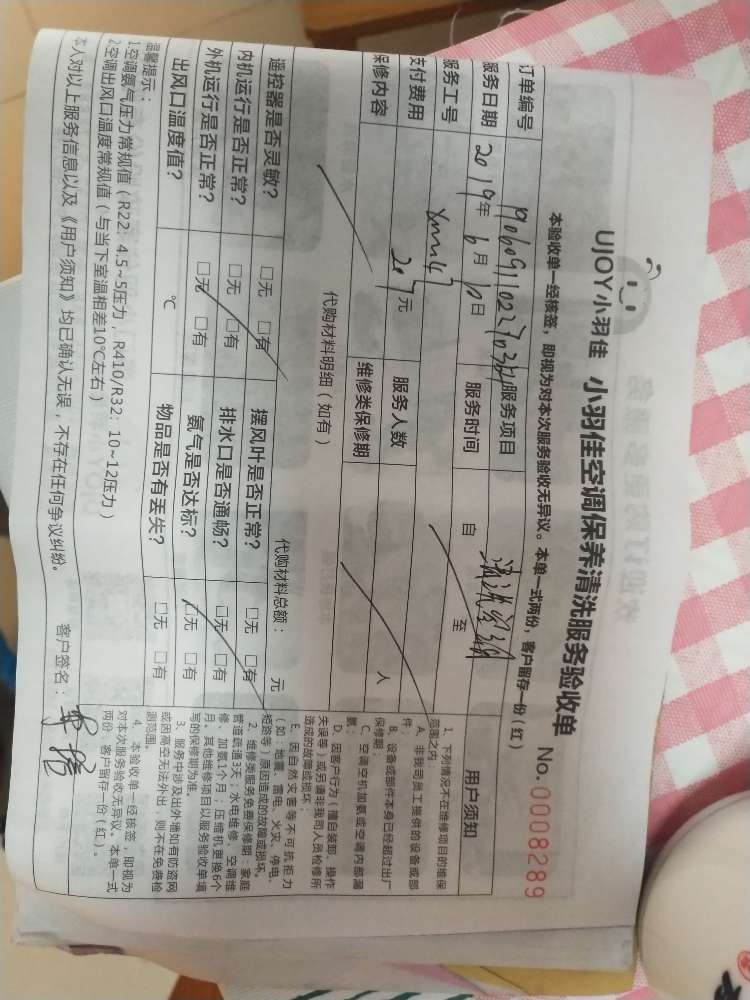 UJOY小羽佳 小羽佳空调保养清洗服务验收单 No.0008289
本验收单一经核签，即视为对本次服务验收无异议。本单一式两份，客户留存一份（红）
订单编号 服务项目 清洗空调
服务日期 2019年 6月 10日 服务时间 自 至
服务工号
支付费用 207元 服务人数 人
保修内容 维修类保修期
代购材料明细（如有） 代购材料总额： 元
遥控器是否灵敏？ □无 □有 摆风叶是否正常？ □无 □有
内机运行是否正常？ □无 □有 排水口是否通畅？ □无 □有
外机运行是否正常？ □无 □有 氨气是否达标？ □无 □有
出风口温度值？ ℃ 物品是否有丢失？ □无 □有
温馨提示：
1.空调氨气压力常规值（R22：4.5~5压力，R410/R32：10~12压力）
2.空调出风口温度常规值（与当下室温相差10℃左右）
本人对以上服务信息以及《用户须知》均已确认无误，不存在任何争议纠纷。 客户签名：
用户须知
1、下列情况不在维修项目的维保
范围之内：
A、非我司员工提供的设备或部
件；
B、设备或部件本身已经超过出厂
保修期；
C、空调空机加氨或空调内部漏
氨；
D、因客户行为（擅自装卸、操作
失误等）或另请非我司人员检修所
造成的故障或损坏；
E、因自然灾害等不可抗拒力
（如：地震、雷电、火灾、停电、
短路等）原因造成的故障或损坏。
2、维修类服务免费保修期：家庭
管道疏通3天；水电维修、空调维
修、加氨1个月；压缩机更换6个
月。其他维修项目以服务验收单填
写的保修期为准。
3、服务中涉及出外墙如有防盗网
或因高空无法外出，则不在免费检
测范围。
4、本验收单一经核签，即视为
对本次服务验收无异议。本单一式
两份，客户留存一份（红）。